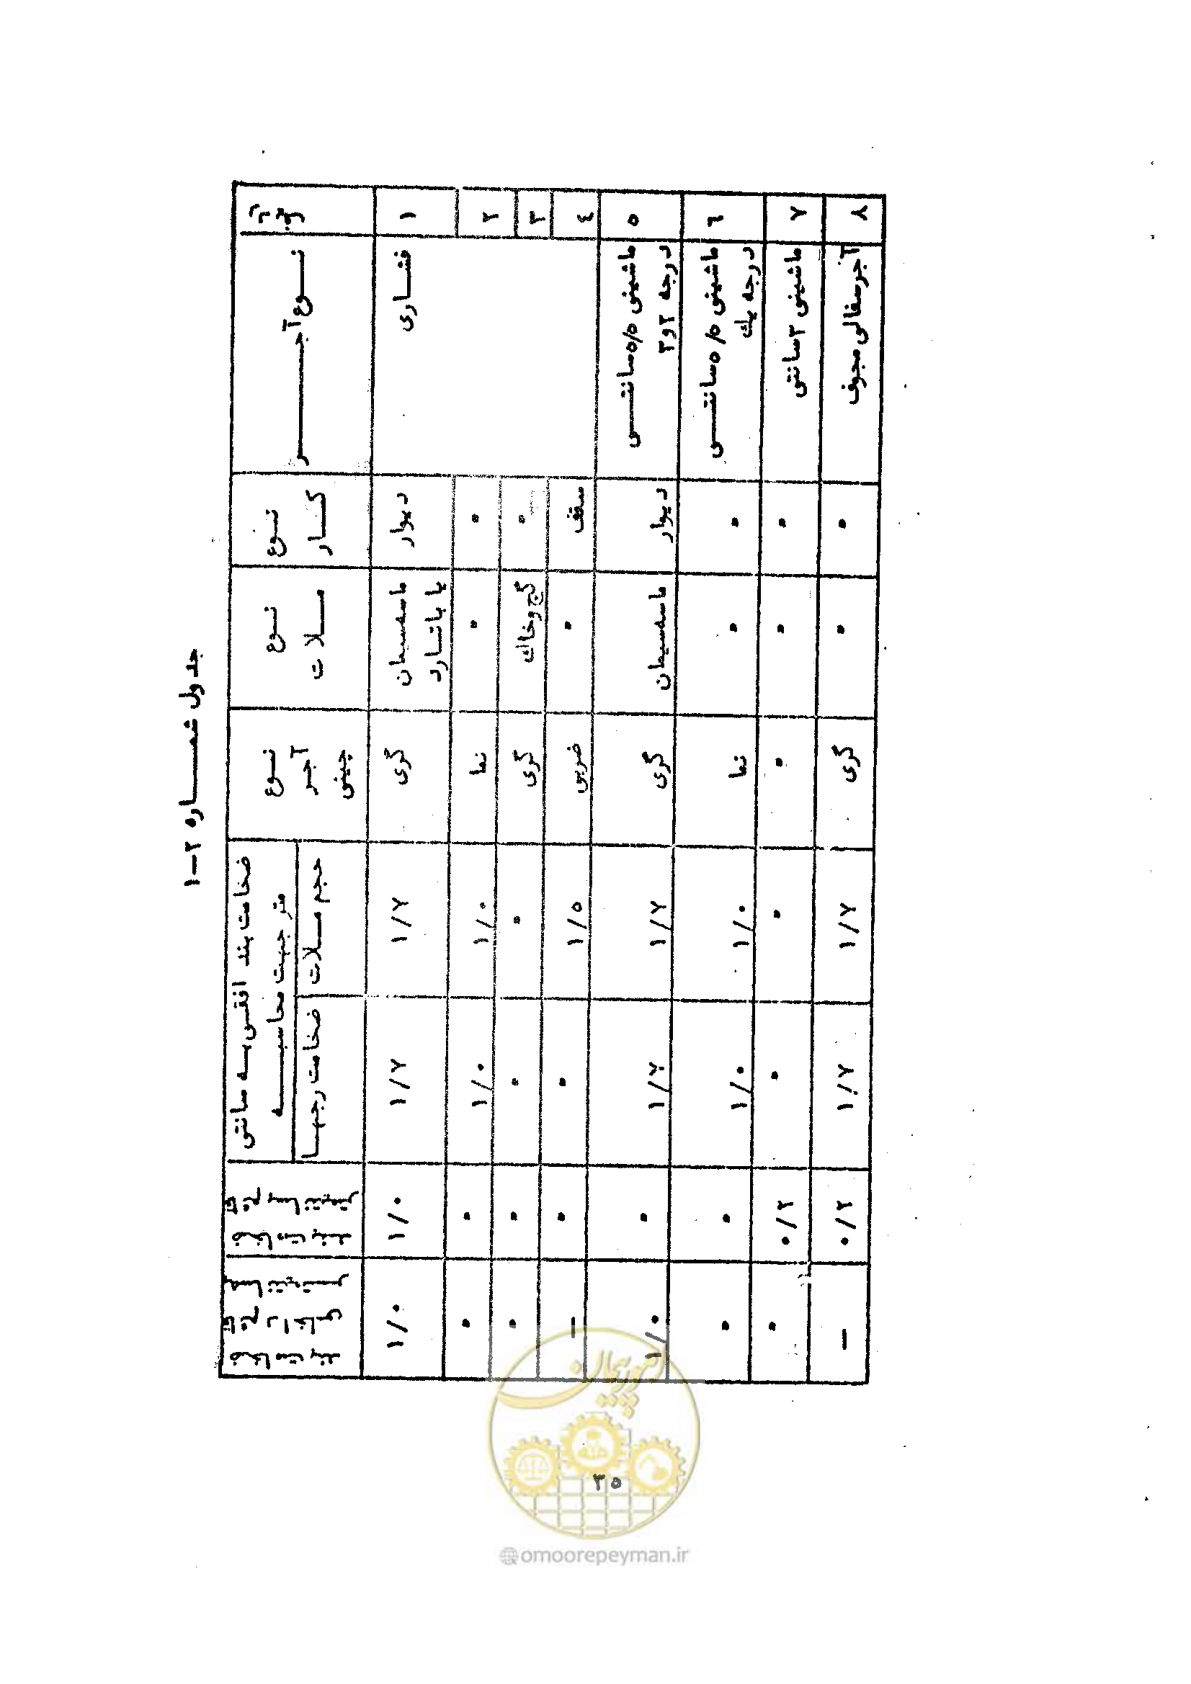 جدول شماره ۲-۱
ردیف
نوع آجر
نوع کار
نوع ملات
نوع آجر چینی
ضخامت بند افقی به سانتی متر جهت محاسبه
حجم ملات
ضخامت رجها
۱ فشاری دیوار ماسه سیمان یا باتارد گری ۱/۷ ۱/۷ ۱/۰ ۱/۰
۲ " " نما ۱/۰ ۱/۰ " "
۳ " گچ و خاک گری " " " "
۴ سقف " ضربی ۱/۵ " " —
۵ ماشینی ۵/۵ سانتی درجه ۲ و ۳ دیوار ماسه سیمان گری ۱/۷ ۱/۷ " ۱/۰
۶ ماشینی ۵/۵ سانتی درجه یک " " نما ۱/۰ ۱/۰ " "
۷ ماشینی ۳ سانتی " " " " " ۰/۲ "
۸ آجر سفالی مجوف " " گری ۱/۷ ۱/۷ ۰/۲ —
امور پیمان
۳۵
@omoorepeyman.ir